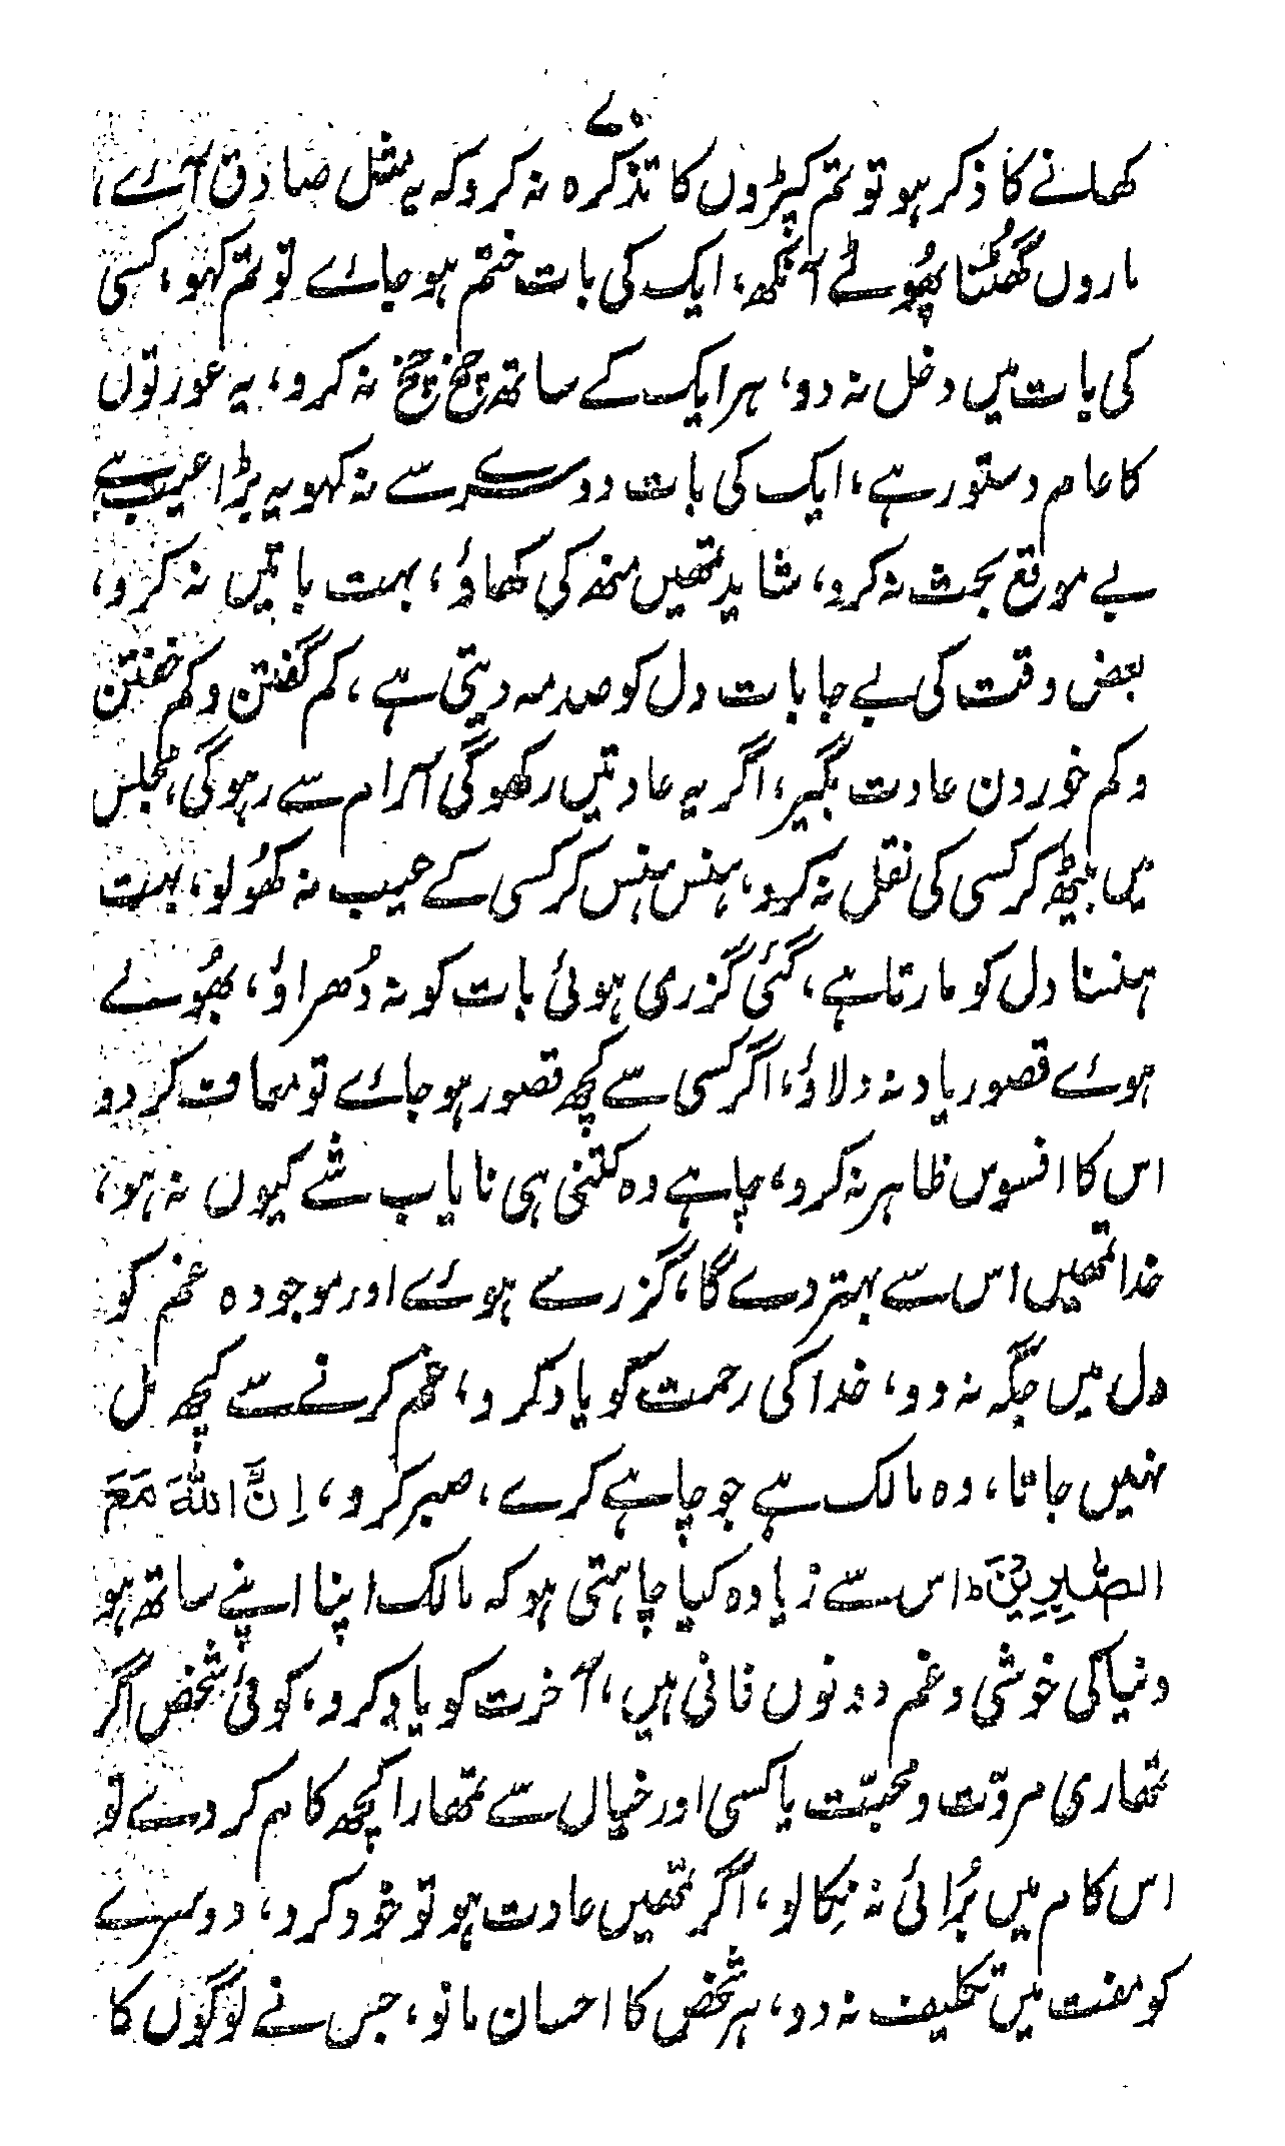 ۷۰
کھانے کا ذکر ہو تو تم کپڑوں کا تذکرہ نہ کرو کہ یہ مثل صادق آئے،
ماروں گھُٹنا پھُوٹے آنکھ، ایک کی بات ختم ہو جائے تو تم کہو، کسی
کی بات میں دخل نہ دو، ہر ایک کے ساتھ چخ چخ نہ کرو، یہ عورتوں
کا عام دستور ہے، ایک کی بات دوسرے سے نہ کہو یہ بڑا عیب ہے
بے موقع بحث نہ کرو، شاید تمھیں منھ کی کھاؤ، بہت باتیں نہ کرو،
بعض وقت کی بے جا بات دل کو صدمہ دیتی ہے، کم گفتن و کم خفتن
و کم خوردن عادت بگیر، اگر یہ عادتیں رکھو گی آرام سے رہو گی، مجلس
میں بیٹھ کر کسی کی نقل نہ کرو، ہنس ہنس کر کسی کے عیب نہ کھُولو، بہت
ہنسنا دل کو مارتا ہے، گئی گزری ہوئی بات کو نہ دُھراؤ، بھُولے
ہوئے قصور یاد نہ دلاؤ، اگر کسی سے کچھ قصور ہو جائے تو معاف کر دو
اس کا افسوس ظاہر نہ کرو، چاہے وہ کتنی ہی نایاب شے کیوں نہ ہو،
خدا تمھیں اس سے بہتر دے گا، گزرے ہوئے اور موجودہ غم کو
دل میں جگہ نہ دو، خدا کی رحمت کو یاد کرو، غم کرنے سے کچھ مل
نہیں جاتا، وہ مالک ہے جو چاہے کرے، صبر کرو، اِنَّ اللّٰہَ مَعَ
الصّٰبِرِیْنَؕ اس سے زیادہ کیا چاہتی ہو کہ مالک اپنا اپنے ساتھ ہو
دنیا کی خوشی و غم دونوں فانی ہیں، آخرت کو یاد کرو، کوئی شخص اگر
تمھاری مروّت و محبّت یا کسی اور خیال سے تمھارا کچھ کام کر دے تو
اس کام میں بُرائی نہ نِکالو، اگر تمھیں عادت ہو تو خود کرو، دوسرے
کو مفت میں تکلیف نہ دو، ہر شخص کا احسان مانو، جس نے لوگوں کا